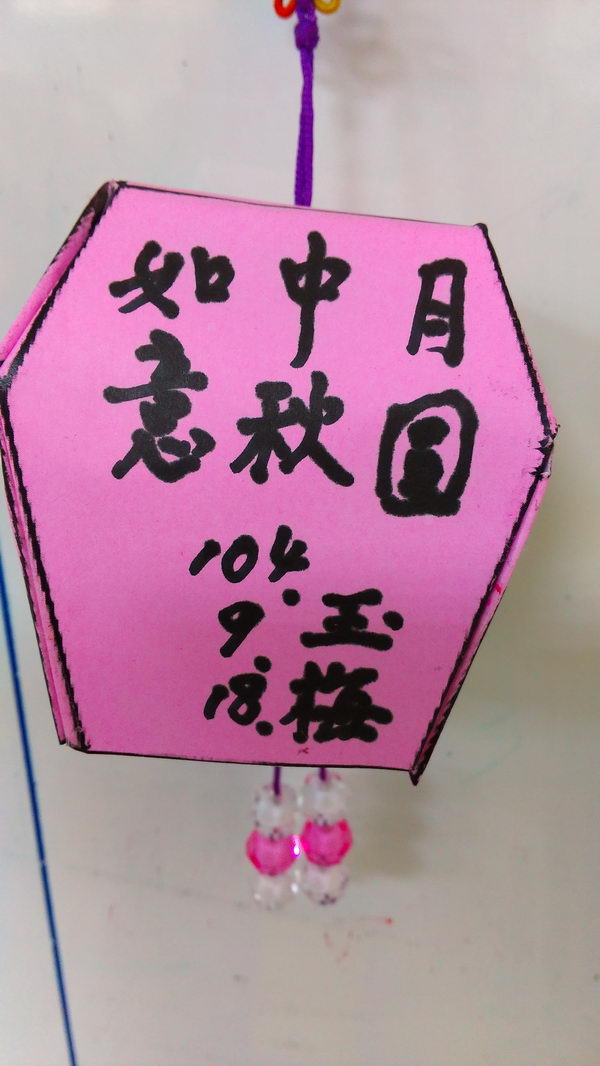 月圓
中秋
如意
玉梅
104.
9.
18.